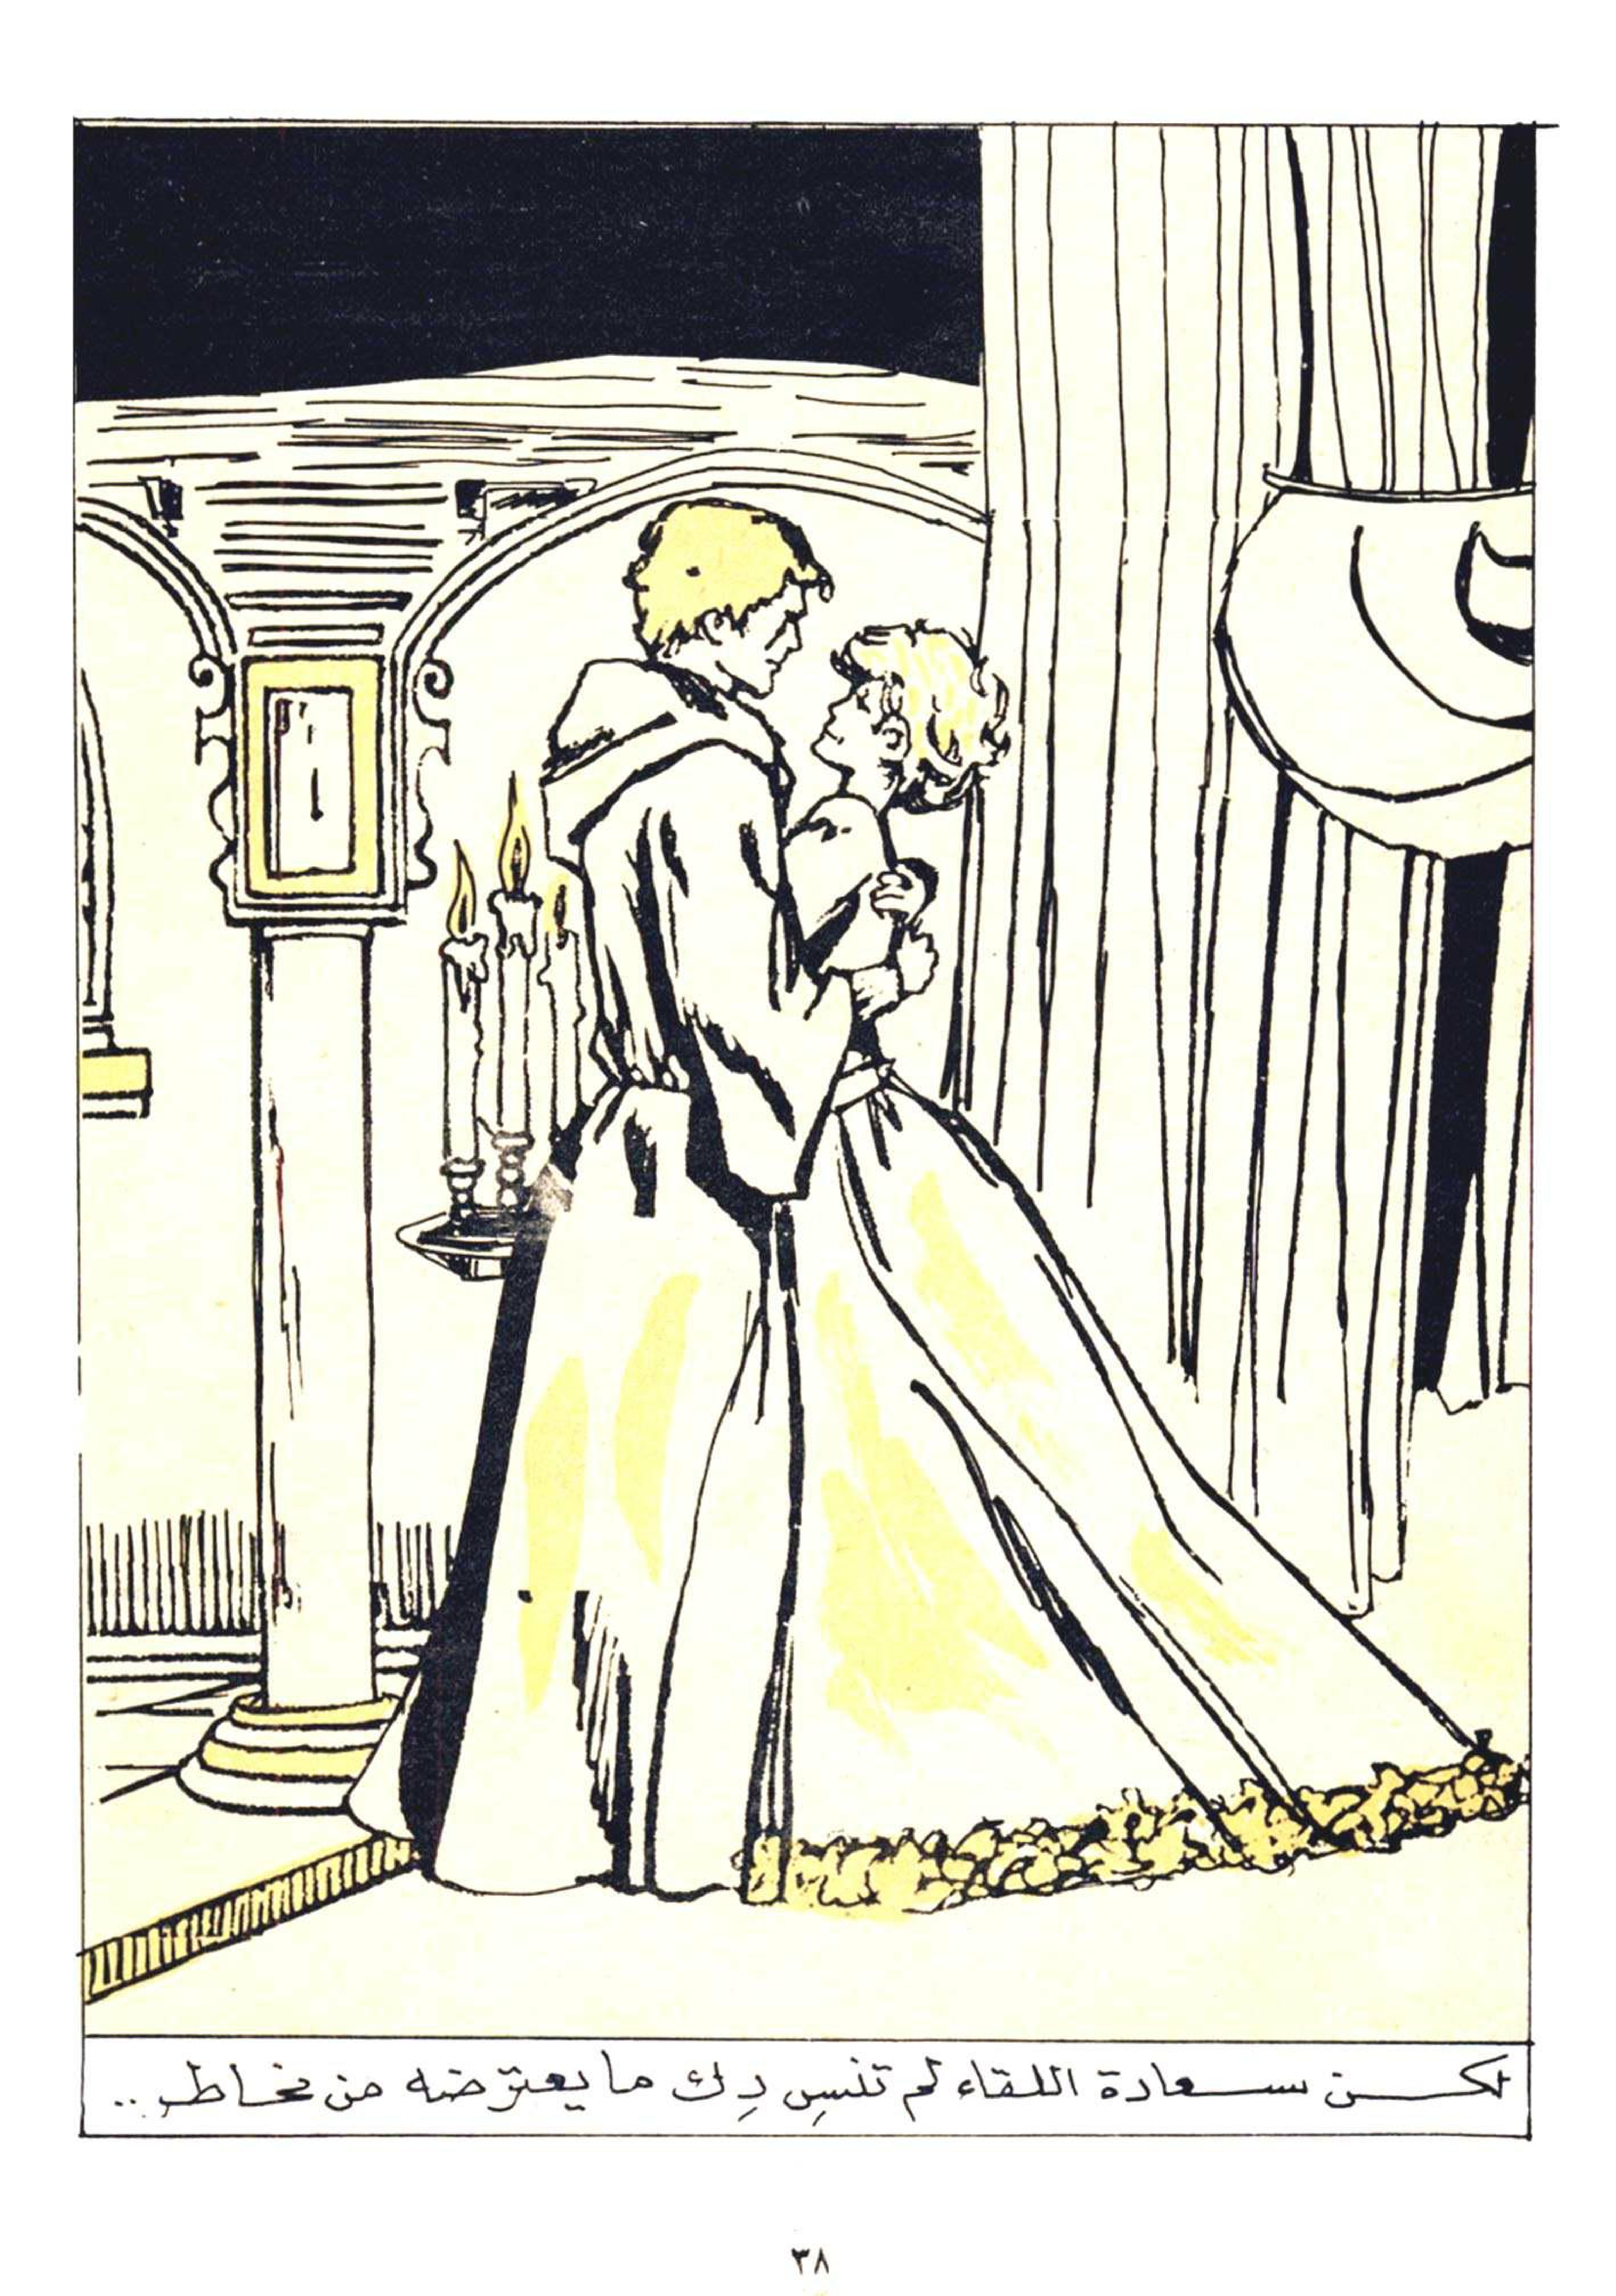 لكن سعادة اللقاء لم تنسِ دِك ما يعترضه من مخاطر ..
٣٨